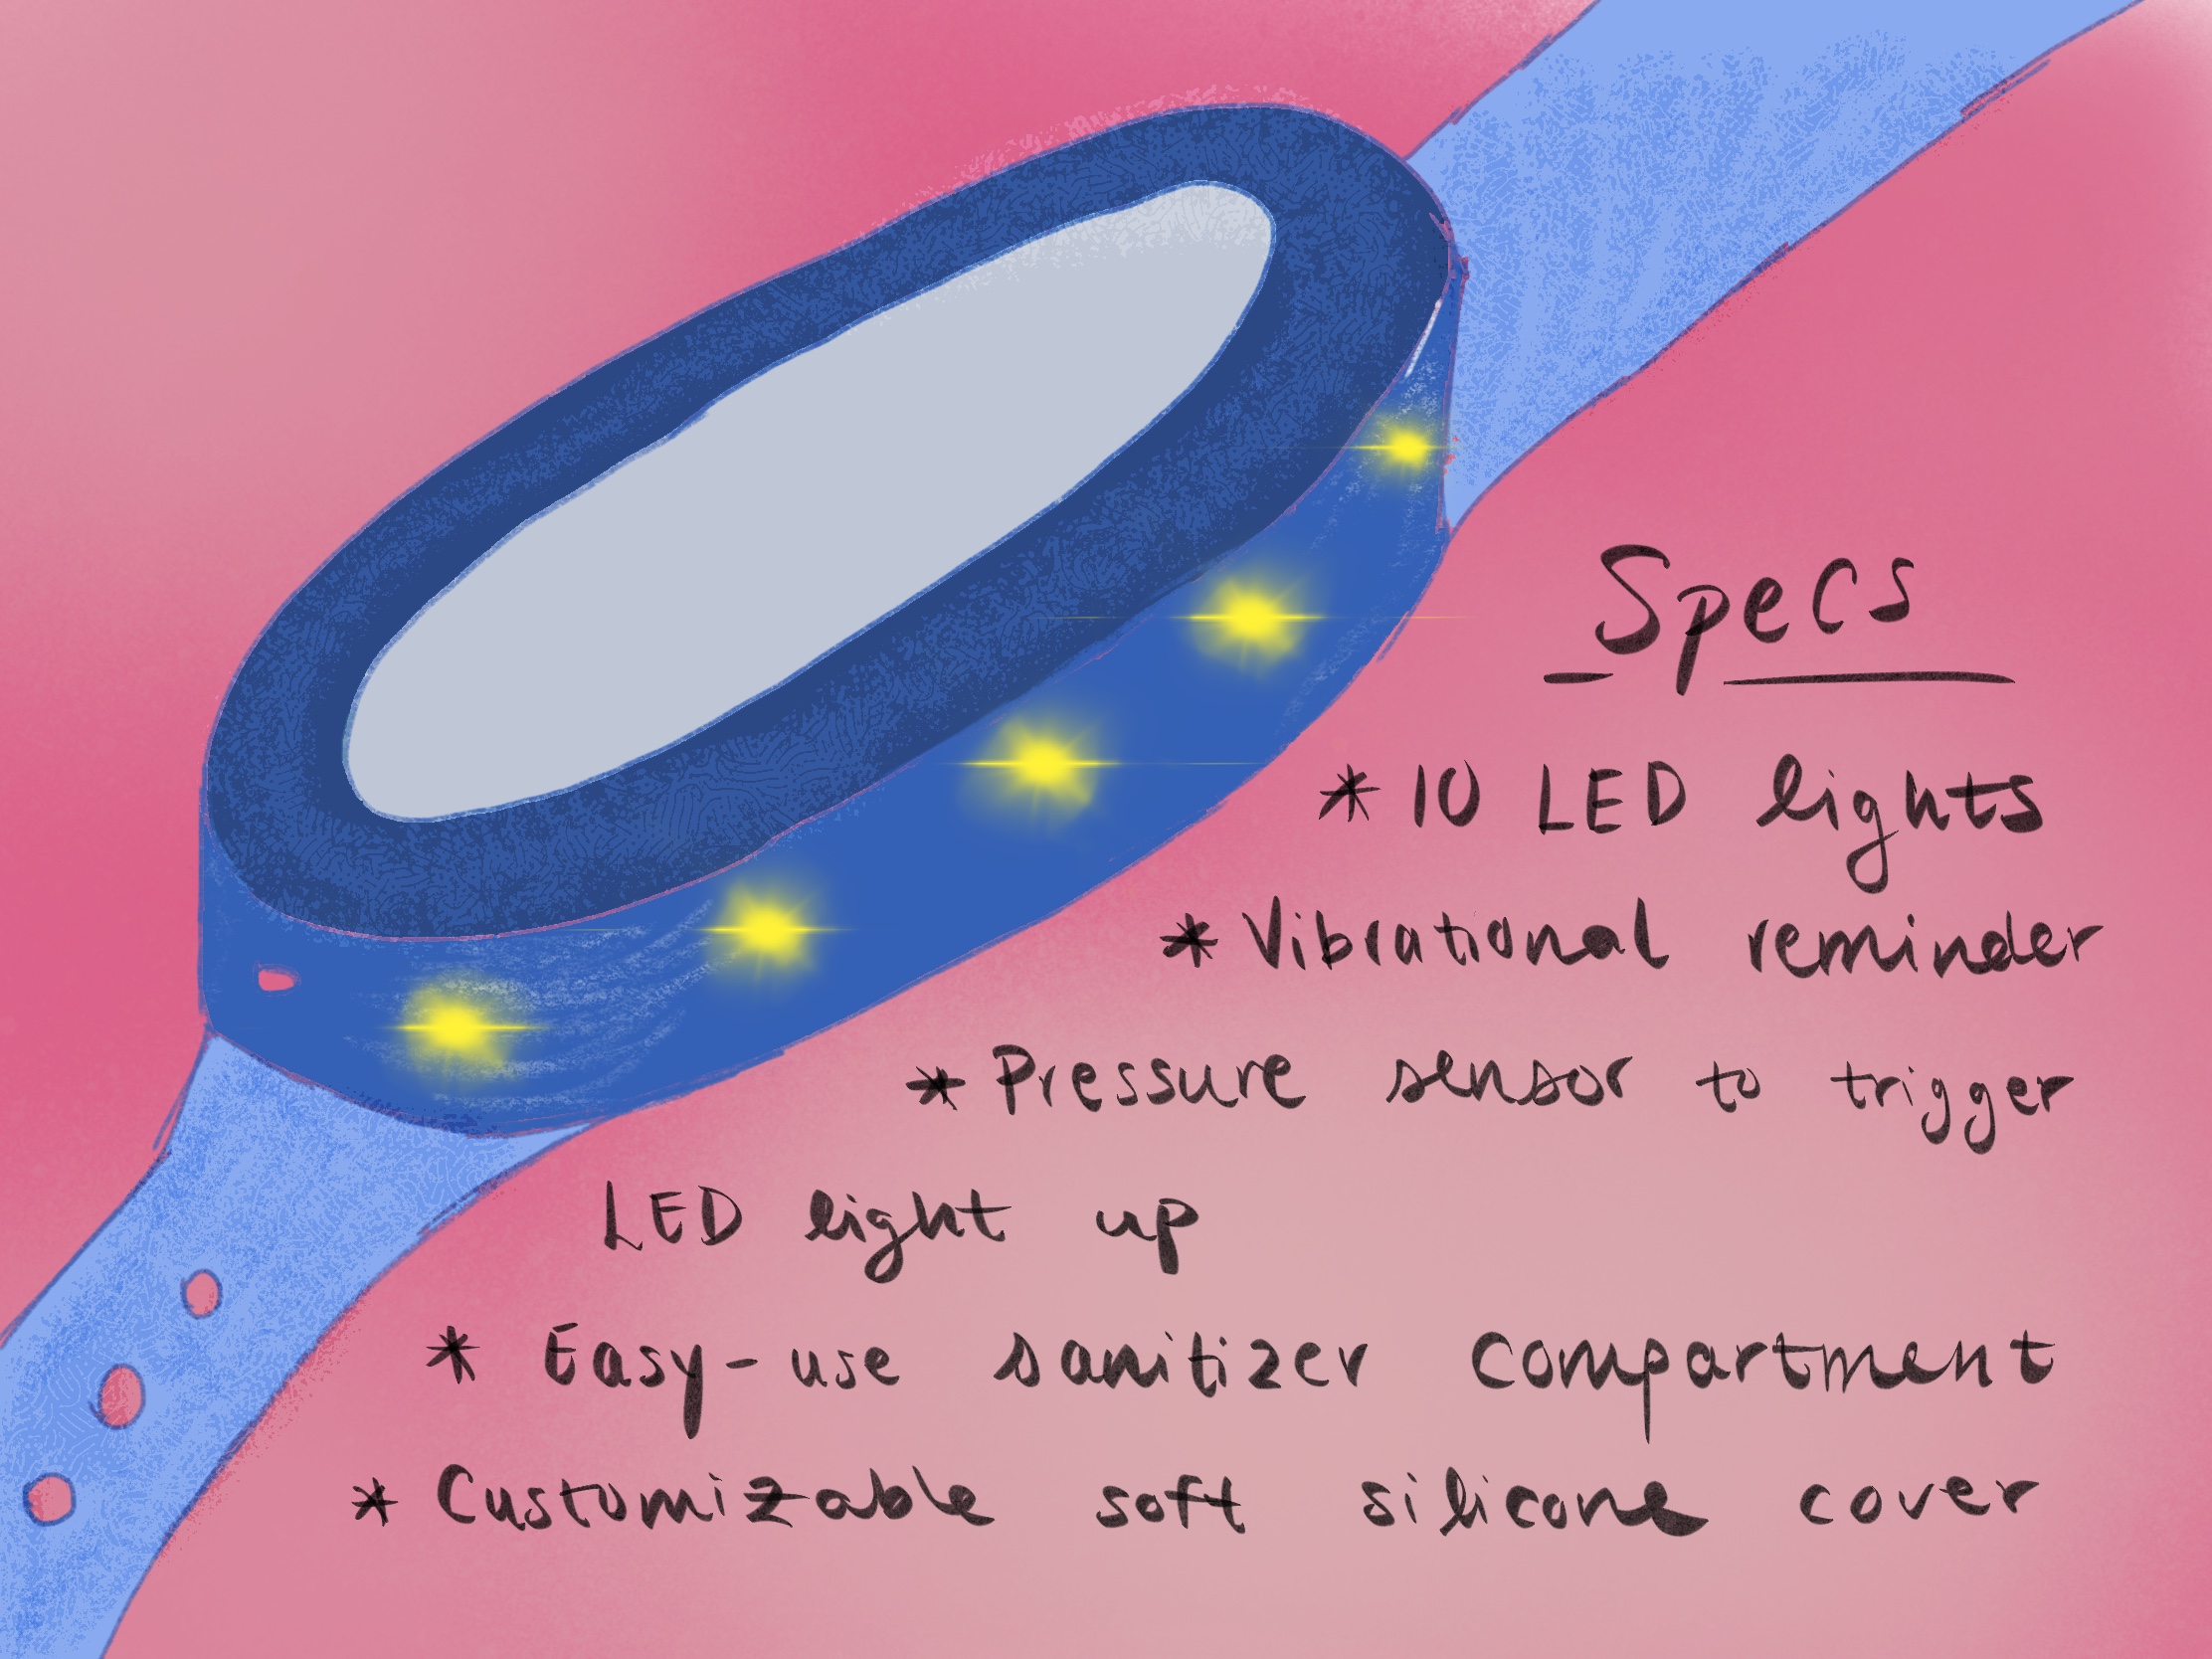 Specs
* 10 LED lights
* Vibrational reminder
* Pressure sensor to trigger
LED light up
* Easy-use sanitizer compartment
* Customizable soft silicone cover